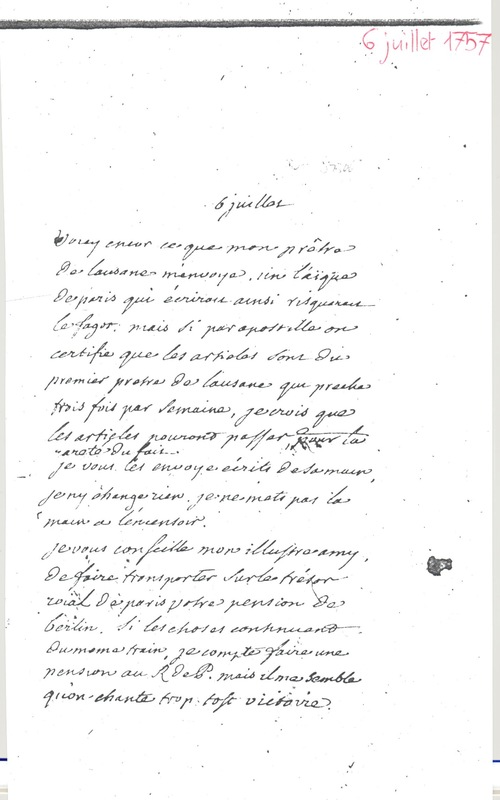 6 juillet 1757
6 juillet
Voicy encor ce que mon prêtre
de lausane m'envoye, un laique
de paris qui écriroit ainsi risqueroit
le fagot. mais si par apostille on
certifie que les articles sont du
premier pretre de lausane qui preche
trois fois par semaine, je crois que
les articles pouront passer pour la
rareté du fait.
je vous les envoye écrits de sa main,
je ny change rien. je ne mets pas la
main a l'encensoir.
je vous conseille mon illustre amy,
de faire transporter sur le trésor
roial de paris votre pension de
berlin. si les choses continuent
du meme train, je compte faire une
pension au R de P. mais il me semble
qu'on chante trop tost victoire.